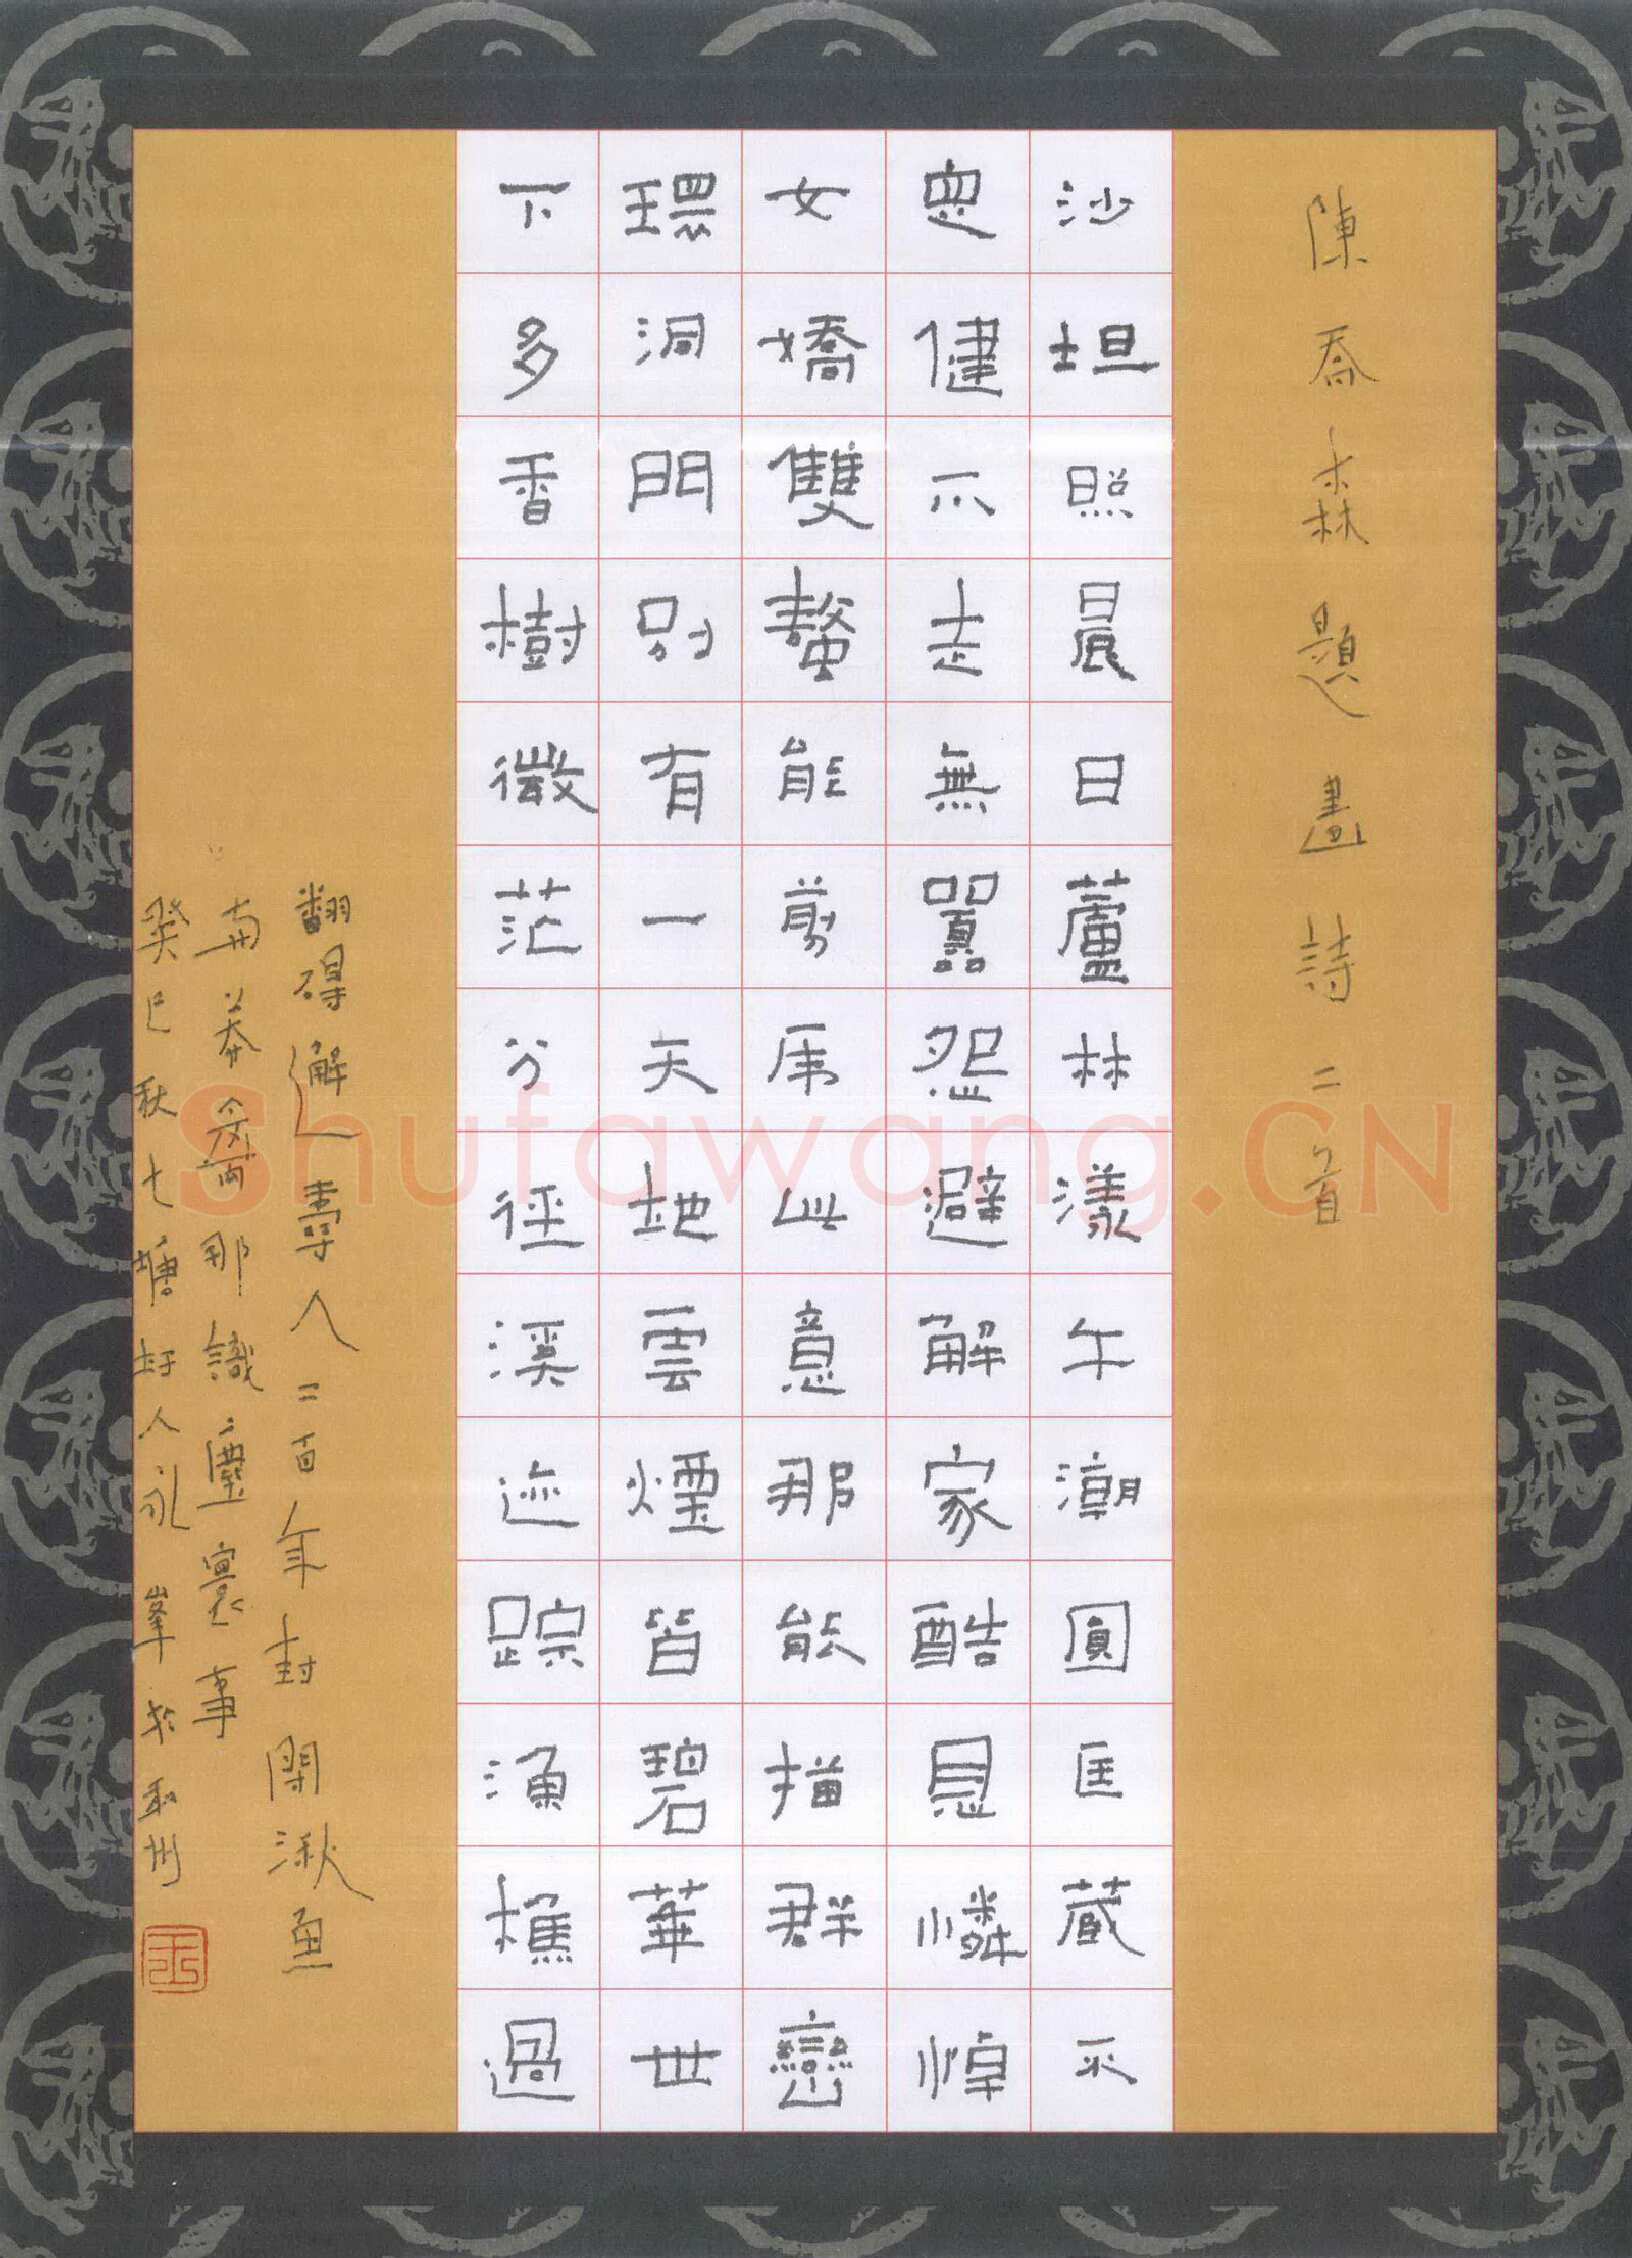 陳喬森題畫詩二首
沙坦照晨日蘆林漾午潮圓匡蔵平
恖健爪走無囂怨避解家酷恳憐悼
女嬌雙螯能剪虎此意那能描群巒
環洞門別有一天地雲煙皆碧華世
下多香樹微茫分徑溪迹踪漁樵過
翻得邂壽人二百年封閉湫魚
南莽齋那識塵寰事
癸巳秋七塘封人永峯於禾州
Shufawang.CN